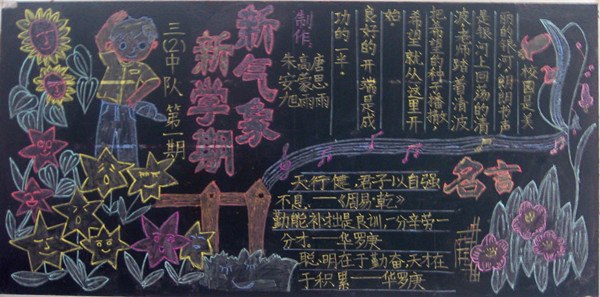 校园是美
丽的银河,朗朗书声
是银河上回荡的清
波,老师踏着清波
把希望的种子播撒,
希望就从这里开
始。
良好的开端是成
功的一半。
制作:
唐思雨
高蒙雨
朱安旭
新气象
新学期
三(2)中队 第一期
名言
天行健,君子以自强
不息。——《周易·乾》
勤能补拙是良训,一分辛劳一
分才。——华罗庚
聪明在于勤奋,天才在
于积累——华罗庚